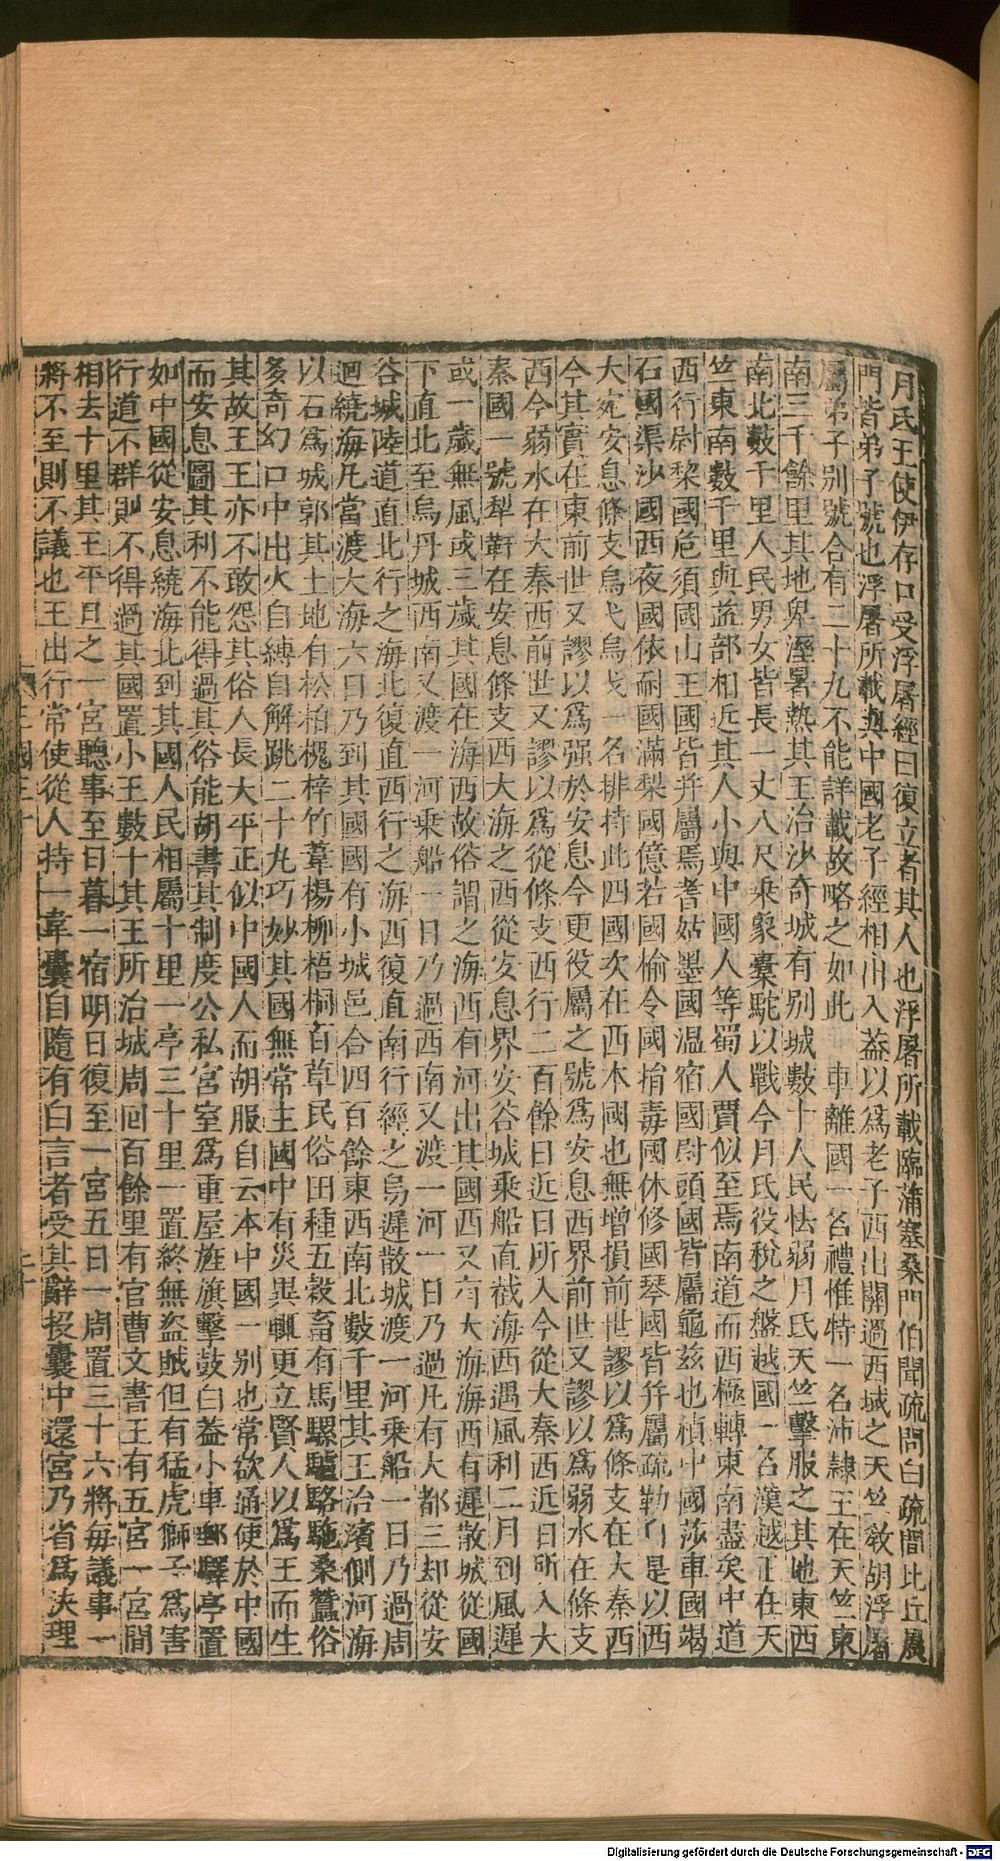 月氏王使伊存口受浮屠經曰復立者其人也浮屠所載臨蒲塞桑門伯聞疏問白疏間比丘晨
門皆弟子號也浮屠所載與中國老子經相出入葢以爲老子西出關過西域之天竺敎胡浮屠
屬弟子别號合有二十九不能詳載故略之如此　車離國一名禮惟特一名沛隷王在天竺東
南三千餘里其地卑溼暑熱其王治沙奇城有别城數十人民怯弱月氏天竺擊服之其地東西
南北數千里人民男女皆長一丈八尺乘象橐駝以戰今月氏役稅之盤越國一名漢越正在天
竺東南數千里與益部相近其人小與中國人等蜀人賈似至焉南道而西極轉東南盡矣中道
西行尉黎國危須國山王國皆幷屬焉耆姑墨國温宿國尉頭國皆屬龜兹也楨中國莎車國竭
石國渠沙國西夜國依耐國滿犁國億若國榆令國捐毒國休修國琴國皆幷屬疏勒自是以西
大宛安息條支烏弋烏戈一名排持此四國次在西本國也無增損前世謬以爲條支在大秦西
今其實在東前世又謬以爲强於安息今更役屬之號爲安息西界前世又謬以爲弱水在條支
西今弱水在大秦西前世又謬以爲從條支西行二百餘日近日所入今從大秦西近日所入大
秦國一號犁靬在安息條支西大海之西從安息界安谷城乘船直截海西遇風利二月到風遲
或一歲無風或三歲其國在海西故俗謂之海西有河出其國西又有大海海西有遲散城從國
下直北至烏丹城西南又渡一河乘船一日乃過西南又渡一河一日乃過凡有大都三却從安
谷城陸道直北行之海北復直西行之海西復直南行經之烏遲散城渡一河乘船一日乃過周
迴繞海凡當渡大海六日乃到其國國有小城邑合四百餘東西南北數千里其王治濱側河海
以石爲城郭其土地有松柏槐梓竹葦楊柳梧桐百草民俗田種五穀畜有馬騾驢駱駞桑蠶俗
多奇幻口中出火自縛自解跳二十丸巧妙其國無常主國中有災異輒更立賢人以爲王而生
其故王王亦不敢怨其俗人長大平正似中國人而胡服自云本中國一别也常欲通使於中國
而安息圖其利不能得過其俗能胡書其制度公私宮室爲重屋旌旗擊鼓白葢小車郵驛亭置
如中國從安息繞海北到其國人民相屬十里一亭三十里一置終無盜賊但有猛虎獅子爲害
行道不群則不得過其國置小王數十其王所治城周回百餘里有官曹文書王有五宮一宮間
相去十里其王平旦之一宮聽事至日暮一宿明日復至一宮五日一周置三十六將每議事一
將不至則不議也王出行常使從人持一韋囊自隨有白言者受其辭投囊中還宮乃省爲決理
三國三十
二十
Digitalisierung gefördert durch die Deutsche Forschungsgemeinschaft - DFG